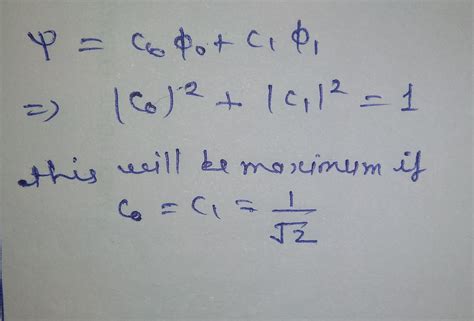 Ψ = c₀ ϕ₀ + c₁ ϕ₁
=> |c₀|² + |c₁|² = 1
this will be maximum if
c₀ = c₁ = 1/√2